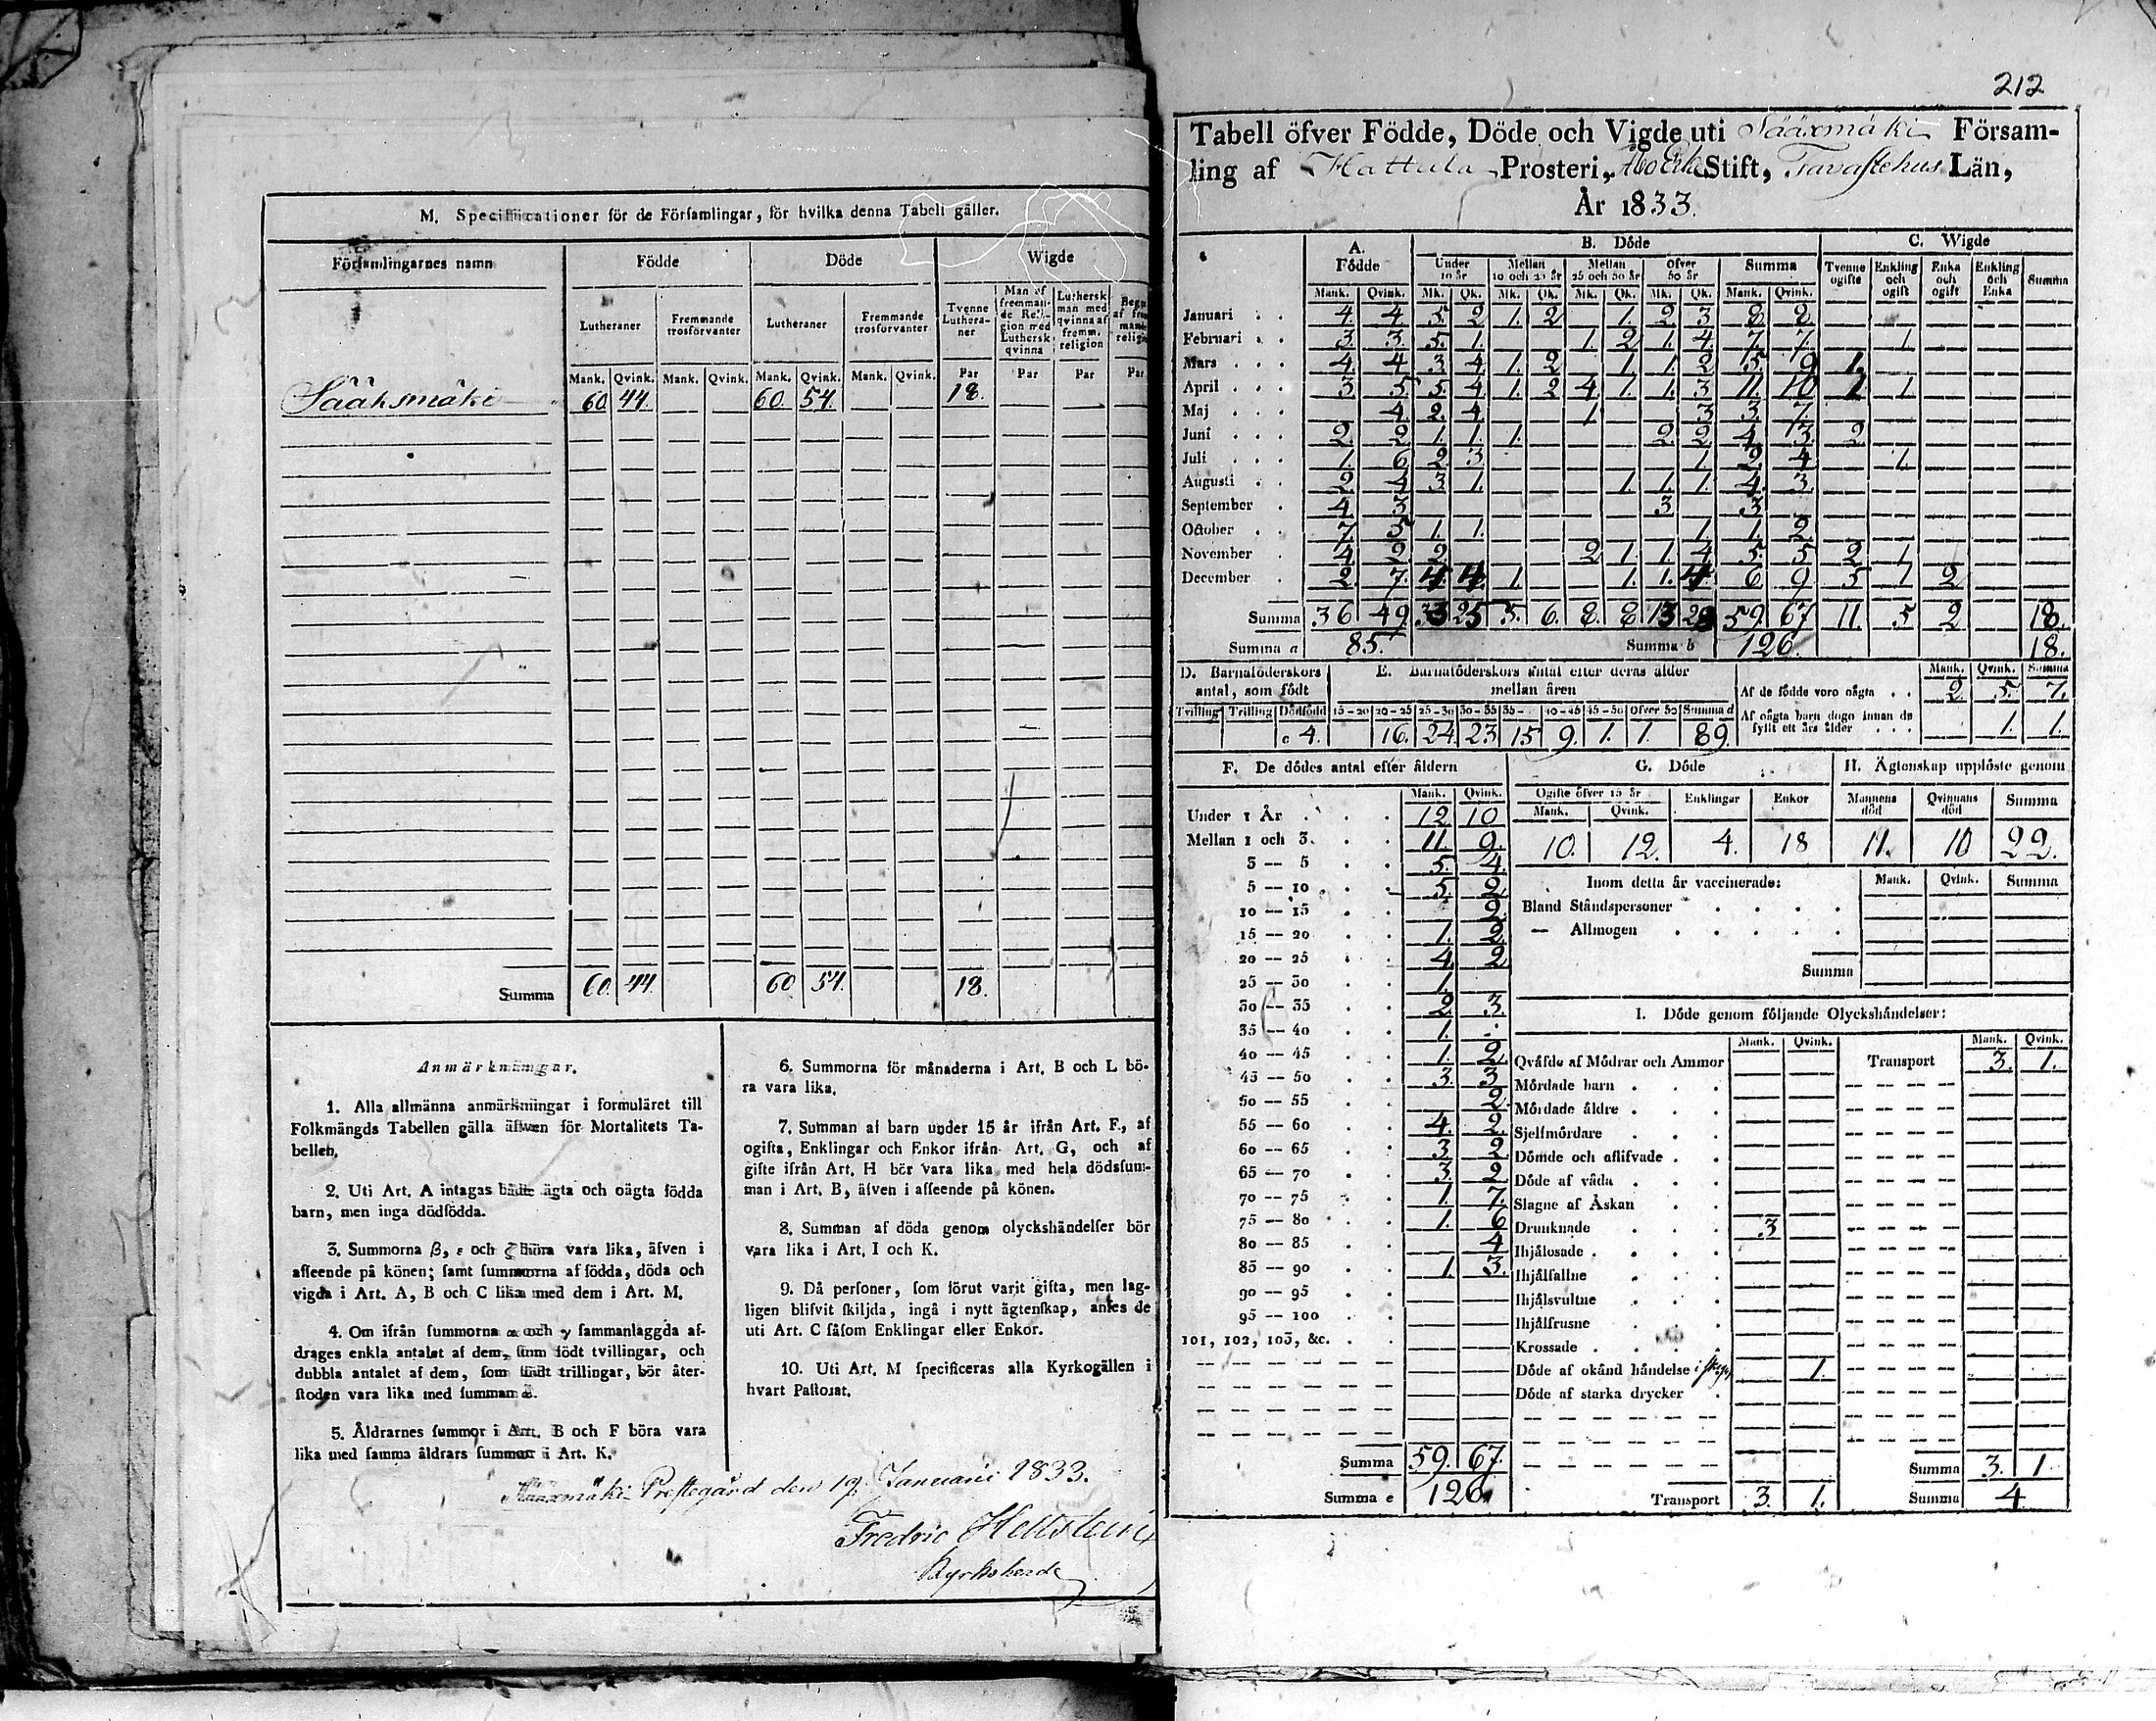 M. Specificationer för de Församlingar, för hvilka denna Tabell gäller.
Församlingarnes namn
Födde
Döde
Wigde
Lutheraner
Fremmande trosförvanter
Lutheraner
Fremmande trosförvanter
Tvenne Lutheraner
Man af fremmande Religion med Luthersk qvinna
Luthersk man med qvinna af fremm. religion
Mank. Qvink. Mank. Qvink. Mank. Qvink. Mank. Qvink. Par Par Par Par
Sääksmäki 60 44. 60. 54. 18.
Summa 60. 44. 60 54. 18.
Anmärkningar.
1. Alla allmänna anmärkningar i formuläret till
Folkmängds Tabellen gälla äfwen för Mortalitets Ta-
bellen.
2. Uti Art. A intagas både ägta och oägta födda
barn, men inga dödfödda.
3. Summorna β, ε och ζ böra vara lika, äfven i
affeende på könen; samt summorna af födda, döda och
vigda i Art. A, B och C lika med dem i Art. M.
4. Om ifrån summorna α och γ sammanlaggda af-
drages enkla antalet af dem, som födt tvillingar, och
dubbla antalet af dem, som födt trillingar, bör åter-
stoden vara lika med summan δ.
5. Åldrarnes summor i Art. B och F böra vara
lika med samma åldrars summor i Art. K.
6. Summorna för månaderna i Art. B och L bö-
ra vara lika.
7. Summan af barn under 15 år ifrån Art. F., af
ogifta, Enklingar och Enkor ifrån Art. G, och af
gifte ifrån Art. H bör vara lika med hela dödsfum-
man i Art. B, äfven i affeende på könen.
8. Summan af döda genom olyckshändelser bör
vara lika i Art. I och K.
9. Då personer, som förut varit gifta, men lag-
ligen blifvit skiljda, ingå i nytt ägtenskap, antes de
uti Art. C såsom Enklingar eller Enkor.
10. Uti Art. M specificeras alla Kyrkogällen i
hvart Pastorat.
Sääxmäki Prestegård den 19. Januarii 1833.
Fredric
Kyrkoherde
212
Tabell öfver Födde, Döde och Vigde uti Sääxmäki Försam-
ling af Hattula Prosteri, Åbo Erke Stift, Tavastehus Län,
År 1833.
A. Födde
B. Döde
C. Wigde
Under 10 år
Mellan 10 och 25 år
Mellan 25 och 50 år
Öfver 50 år
Summa
Tvenne ogifte
Enkling och ogift
Enka och ogift
Enkling och Enka
Summa
Mank. Qvink. Mk. Qk. Mk. Qk. Mk. Qk. Mk. Qk. Mank. Qvink.
Januari 4. 4 5. 2 1. 2 1. 2 3 8 8
Februari 3 3. 5. 1. 1. 2 1. 4. 7. 7. 1
Mars 4 4 3 4 1. 2 1 1. 2 5 9 1.
April 3 5 5. 4. 1. 2 4 1. 1. 3 11. 10 1 1
Maj 4. 2. 4 1 3 3 7.
Juni 2. 2 1. 1. 1. 2. 2 4. 3 2
Juli 1. 6 2. 3 1. 2. 4 1.
Augusti 2. 4 3 1. 1. 1. 1. 4. 3.
September 4 3 3 3
October 7. 3 1. 1. 1 1. 2
November 4 2 2 2 1. 1. 4 5. 5 2 1
December 2. 7. 4 4 1 1. 1. 4 6 9 5 1 2
Summa 36 49 33 25 5. 6. 8. 8 13 28 59. 67 11. 5 2 18.
Summa a 85. Summa b 126. 18.
D. Barnaföderskors antal, som födt
E. Barnaföderskors antal efter deras ålder mellan åren
Tvilling Trilling Dödfödd 15-20 20-25 25-30 30-35 35- 40-45 45-50 Öfver 50 Summa d
c 4. 16. 24 23 15 9. 1. 1. 89.
Mank. Qvink. Summa
Af de födde voro oägta 2 5. 7.
Af oägta barn dogo innan de fyllt ett års ålder 1. 1.
F. De dödes antal efter åldern
Mank. Qvink.
Under 1 År 12 10
Mellan 1 och 3. 11. 9.
3 — 5 5. 4.
5 — 10 5 2
10 — 15 2
15 — 20 1. 2
20 — 25 4. 2
25 — 30 1.
30 — 35 2. 3.
35 — 40 1.
40 — 45 1. 2
45 — 50 3. 3
50 — 55 2.
55 — 60 4. 2.
60 — 65 3 2
65 — 70 3. 2
70 — 75 1. 7.
75 — 80 1. 6
80 — 85 4
85 — 90 1. 3.
90 — 95
95 — 100
101, 102, 103, &c.
Summa 59. 67.
Summa e 126.
G. Döde
Ogifte öfver 15 år
Mank. Qvink. Enklingar Enkor
10. 12. 4. 18
H. Ägtenskap upplöste genom
Mannens död Qvinnans död Summa
11. 10 22.
Inom detta år vaccinerade: Mank. Qvink. Summa
Bland Ståndspersoner
— Allmogen
Summa
I. Döde genom följande Olyckshändelser:
Mank. Qvink. Mank. Qvink.
Qväfde af Mödrar och Ammor Transport 3. 1.
Mördade barn
Mördade äldre
Sjelfmördare
Dömde och aflifvade
Döde af våda
Slagne af Åskan
Drunknade 3
Ihjälosade
Ihjälfallne
Ihjälsvultne
Ihjälfrusne
Krossade
Döde af okänd händelse 1.
Döde af starka drycker
Summa 3. 1.
Transport 3. 1. Summa 4.